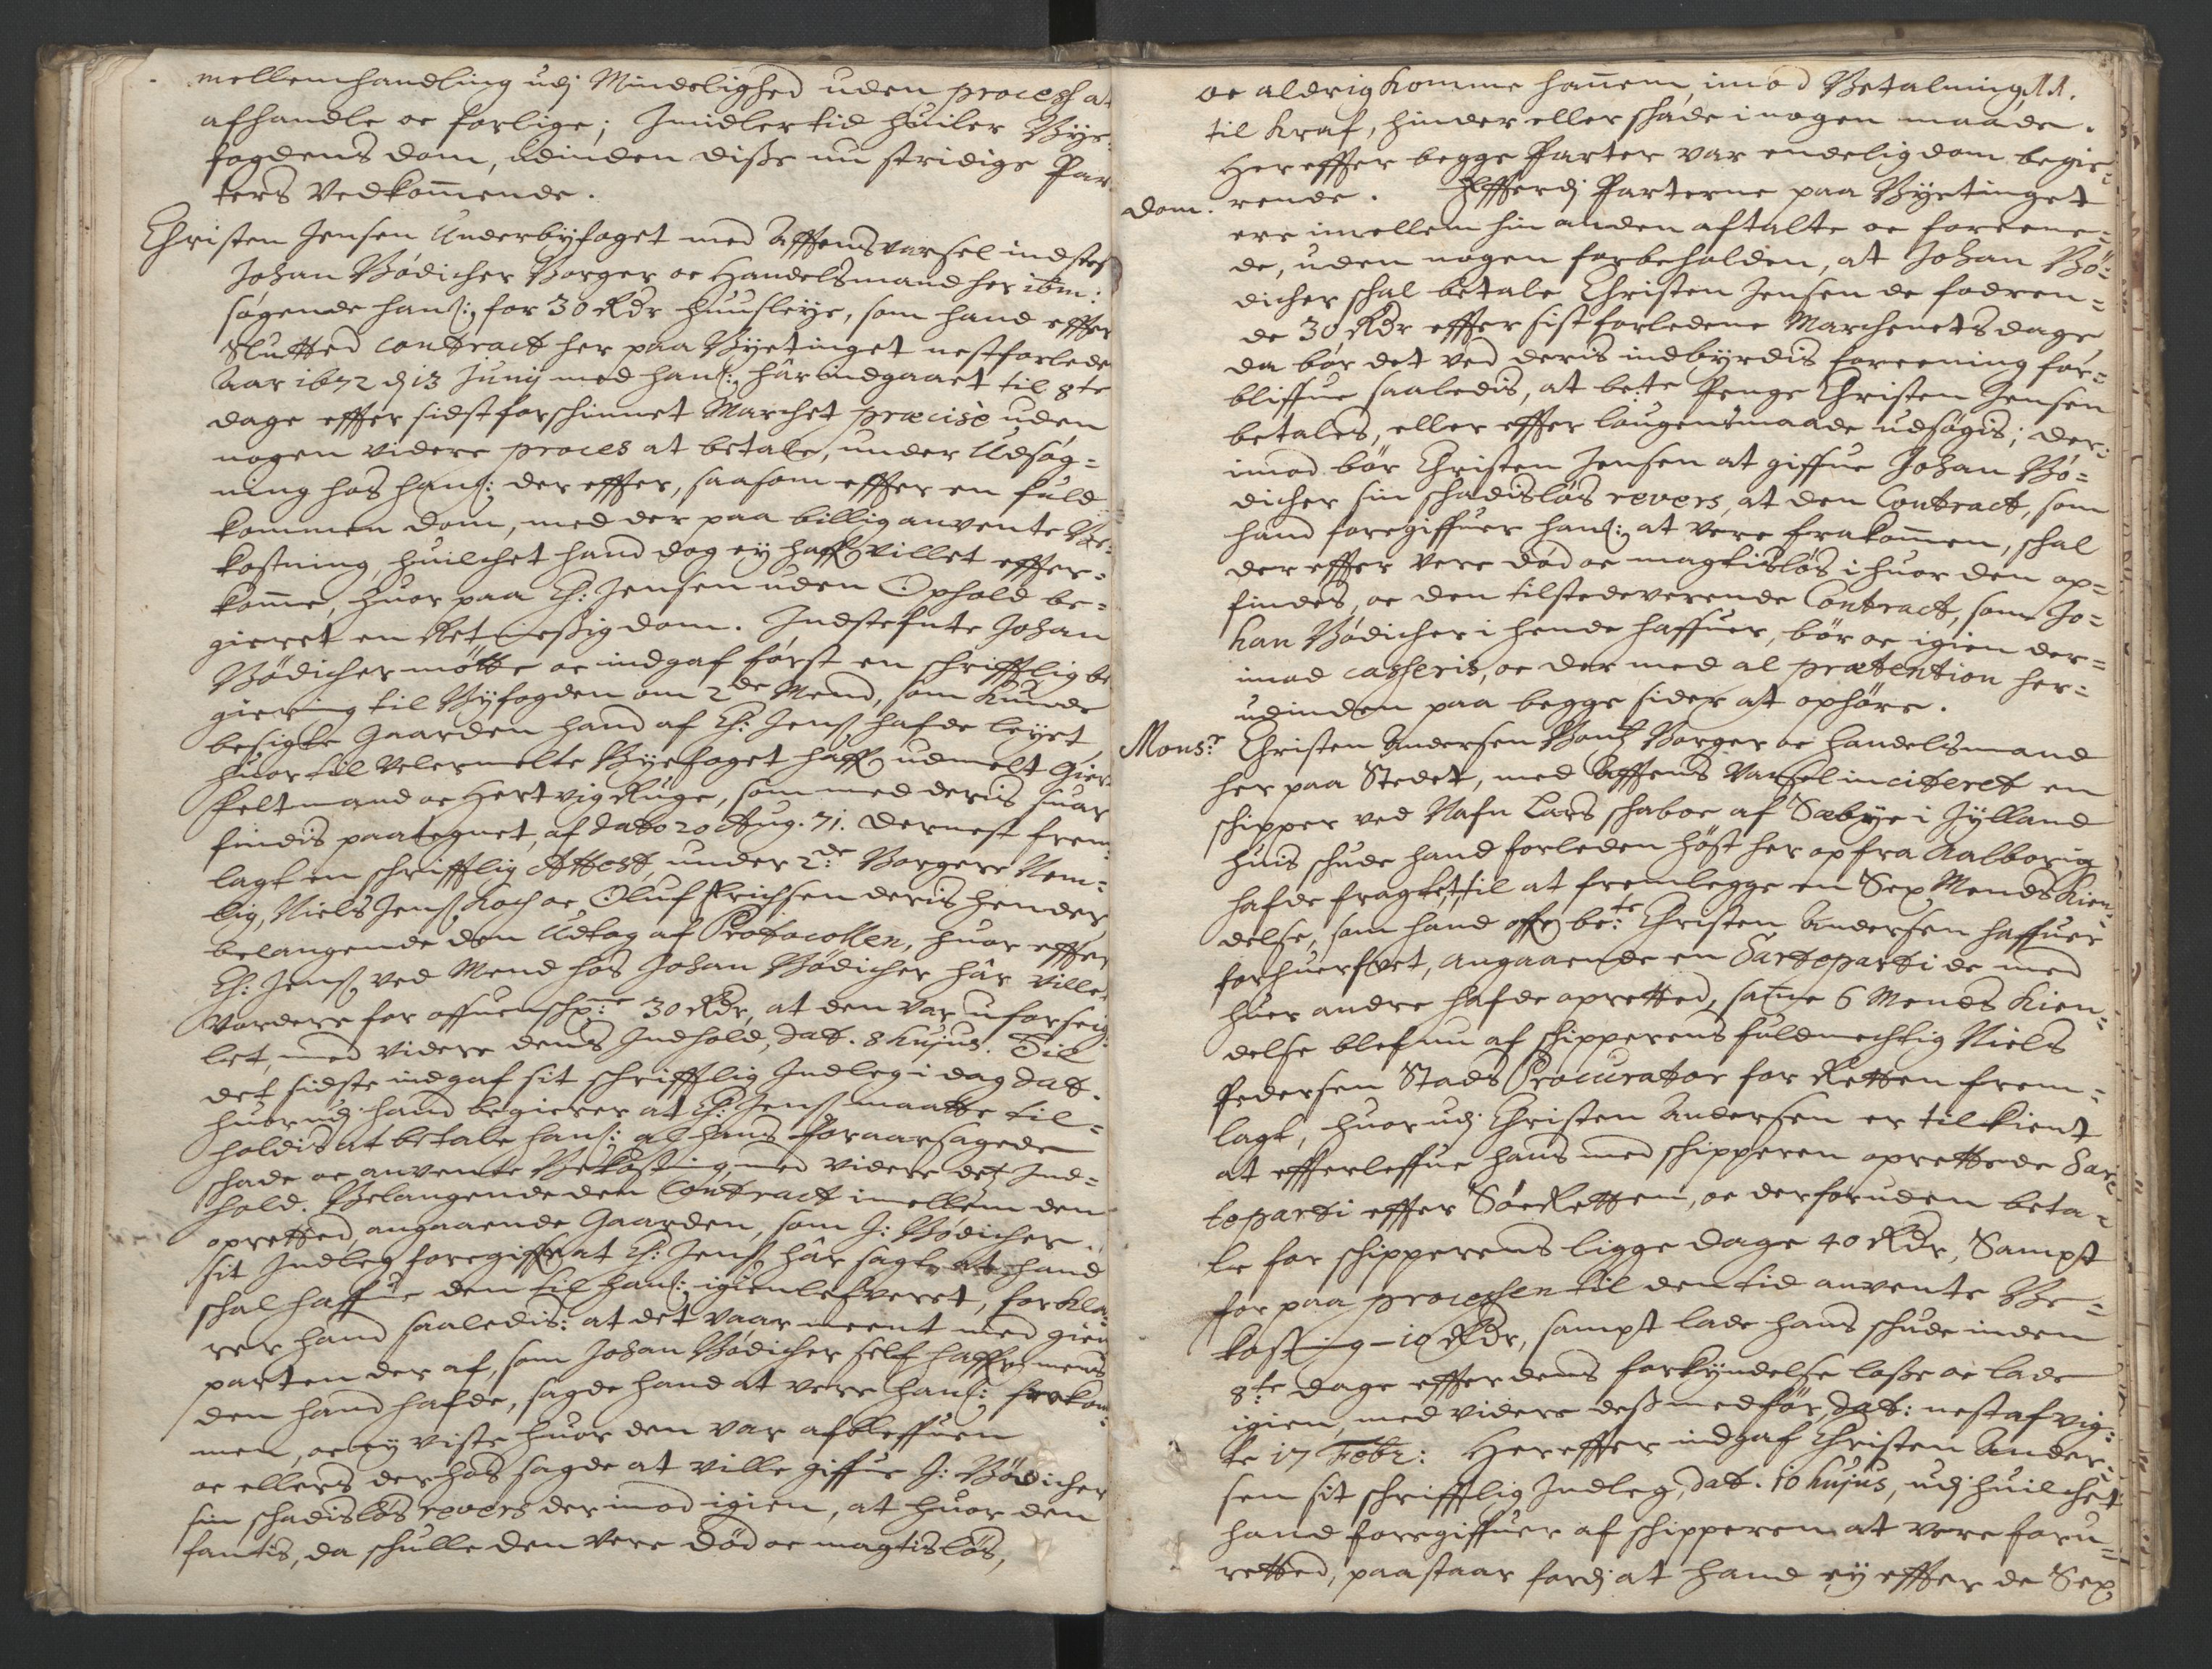 mellemhandling udj Mindelighed uden process at
afhandle oc forlige; Imidlertid huiler Bÿe-
fogdens dom, udinden disse nu stridige Par-
ters Vedkom̄ende.
Christen Jensen Underbyfoget med Afftensvarsel indstef
Johan Bödicher Borger oc Handelsmand her ibm:
søgende hanß: for 30 Rdr huusleye, som hand effter
Slutted contract her paa Byetinget nestforleden
Aar 1672 d 13 Junij med hanß: hâr indgaaet til 8te
dage effter sidstforschinnet Marchet præcisè uden
nogen videre proces at betale, under Udsøg=
ning hos hanß: der effter, saasom effter en fuld-
kommen dom, med der paa billig anvente Be-
kostning, huilchet hand dog ey haffr villet effter=
kom̄e, huor paa Ch: Jensen uden Ophold be=
gieret en Retmessig dom. Indstefnte Johan
Bödicher møtte oc indgaf først en schrifftlig be
giering til Byfogden om 2de Mend, som kunde
besigte Gaarden hand af Ch: Jenß: hafde leyet
huor til Velermelte Byefoget haffr udmelt Gier
feltmand oc Hertvig Rüge, som med deris suar
findis paategnet, af dato 20 Aug. 71. dernest frem-
lagt en schrifftlig Attest, under 2de Borgere Nem=
lig, Niels Jenß: Koch oc Oluf Erichsen deris hender
belangende den Udtog af Protocollen, huor effter
Ch: Jenß: ved Mend hos Johan Bödicher hâr villet
vordere for offuenschr:ne 30 Rdr, at den var uforseig-
let, med videre dens Indhold, dat. 8 hujus. Til
det sidste indgaf sit schrifftlig Indleg i dag dat.
huorudj hand begierer at Ch: Jenß maatte til=
holdis at betale hanß: al hans foraarsagede
schade oc anvente Bekostning, med videre detz Ind=
hold. Belangende den Contract imellem den
opretted, angaaende Gaarden, som J: Bödicher
sit Indleg foregiffr at Ch: Jenß hâr sagt, at hand
schal haffue den til hanß: igienlefveret, forkla-
rer hand saaledis: at det vaar meent med gien
parten der af, som Johan Bödicher self haffr, mens
den hand hafde, sagde hand at vere hanß: frakom-
men, oc ey viste huor den var afbleffuen
oc ellers der hos sagde at ville giffue J: Bödicher
sin schadisløs revers der imod igien, at huor den
fantis, da schulle den vere død oc magtisløs,
oc aldrig komme han̄em, imod Betalning,
til Kraf, hinder eller schade i nogen maade.
Her effter begge Parter var endelig dom begie-
dom. rende. Effterdj Parterne paa Byetinget
ere imellem hin anden aftalte oc foreene=
de, uden nogen forbeholden, at Johan Bö=
dicher schal betale Christen Jensen de fodren=
de 30 Rdr effter sist forledene Marchenets dage
da bør det ved deris indbyrdis foreening for=
bliffue saaledis, at be:te Penge Christen Jensen
betales, eller effter laugensmaade udsøgis; der-
imod bør Christen Jensen at giffue Johan Bö=
dicher sin schadisløs revers, at den Contract, som
hand foregiffuer hanß: at vere frakom̄en, schal
der effter vere død oc magtisløs i huor den op=
findes, oc den tilstedeverende Contract, som Jo=
han Bödicher i hende haffuer, bør oc igien der=
imod casseris, oc der med al prætention her=
udinden paa begge sider at ophøre.
Mons.r Christen Andersen Bentz Borger oc Handelsmand
her paa Stedet, med Afftens Varsel inciteret en
schipper ved Nafn Lars schaboe af Sæbÿe i Jylland
huis schude hand forleden høst her op fra Aalborig
hafde fragtet, til at fremlegge en Sex Mends Kien-
delse, som hand offr be:te Christen Andersen haffuer
forhuerfvet, angaaende en Certeparti de med
huer andre hafde opretted, sam̄e 6 Mends Kien=
delse blef nu af schipperens fuldmechtig Niels
Pedersen Stads Procurator for Retten frem=
lagt, huorudj Christen Andersen er tilkient
at effterleffue hans med schipperen oprettede Cer=
teparti effter Søe Retten, oc der foruden beta=
le for schipperens ligge dage 40 Rdr, Sampt
for paa processen til den tid anvente Be=
kostning – 10 Rdr, sampt lade hans schude inden
8te dage effter dens forkyndelse losse oc lade
igien, med videre dess medfør, dat: nestafvig-
te 17 Febr: Her effter indgaf Christen Ander-
sen sit schrifftlig Indleg, dat. 10 hujus, udj huilchet
hand foregiffuer af schipperen at vere foru=
retted, paastaar fordj at hand ey effter de Sex